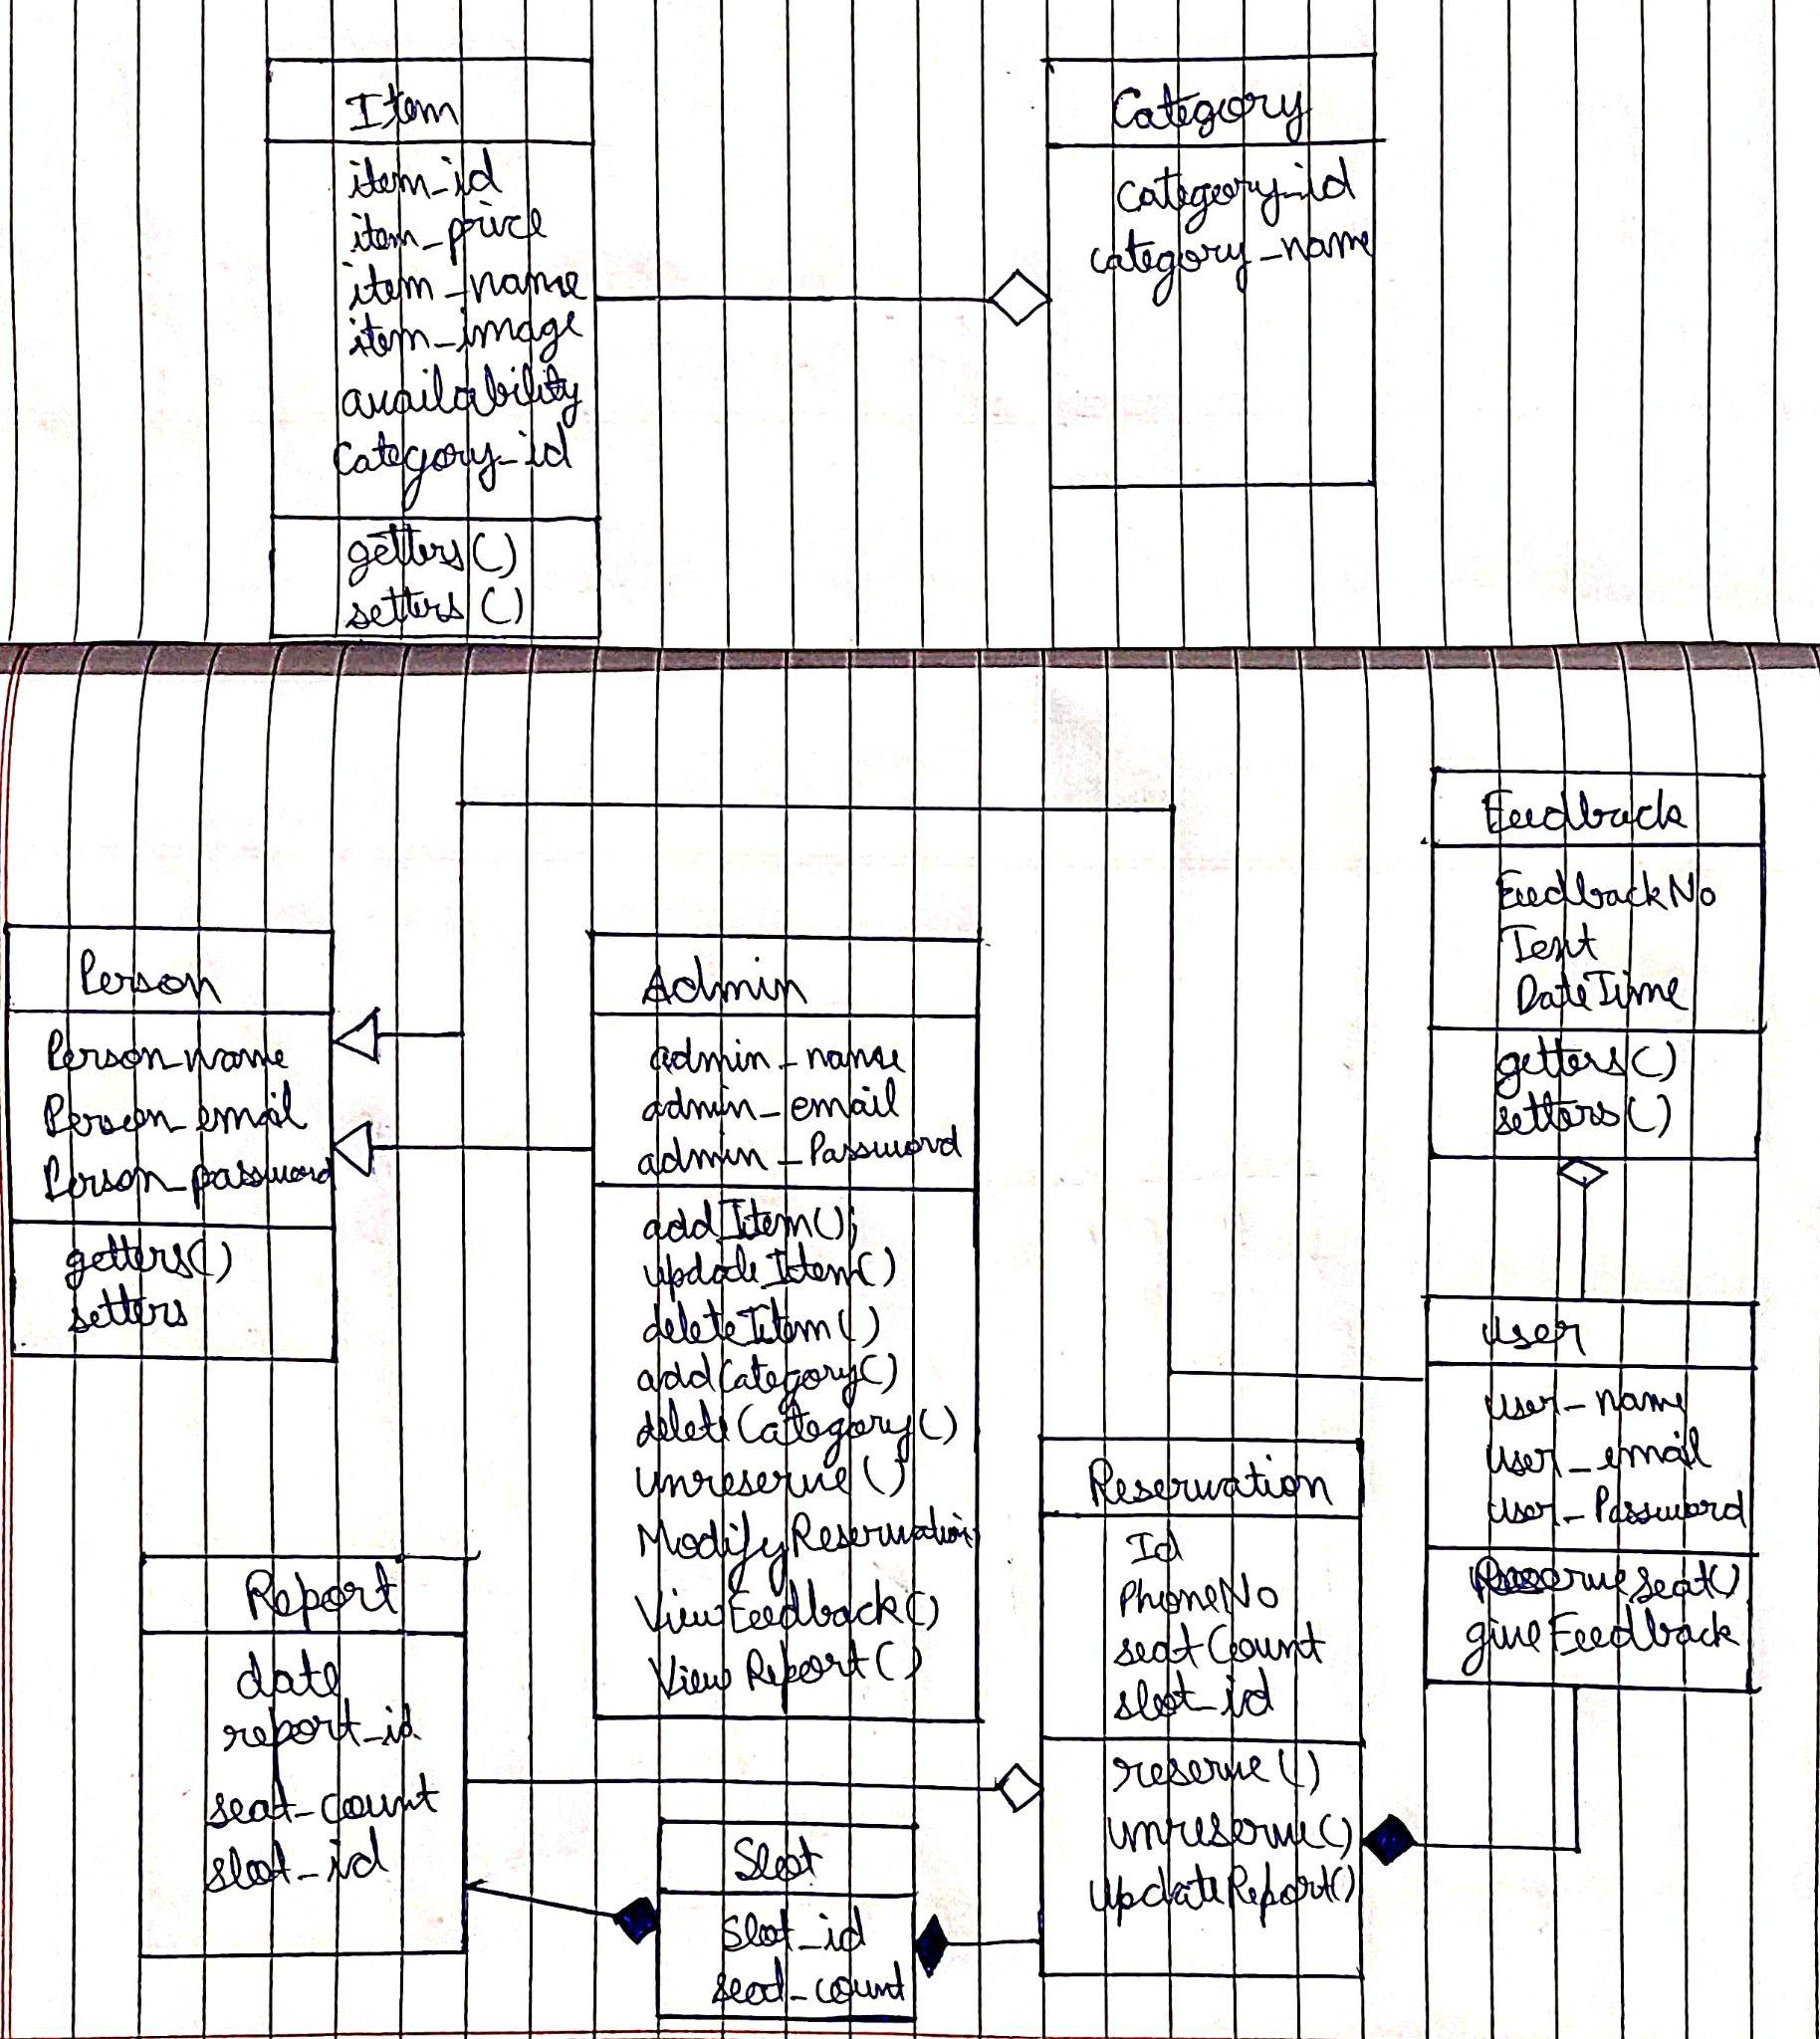 Item
item_id
item_price
item_name
item_image
availability
category_id
getters()
setters()
Category
category_id
category_name
Person
Person_name
Person_email
Person_password
getters()
setters
Admin
admin_name
admin_email
admin_Password
addItem();
updateItem()
deleteItem()
addCategory()
deleteCategory()
unreserve()
ModifyReservation
ViewFeedback()
ViewReport()
Feedback
FeedbackNo
Text
DateTime
getters()
setters()
User
user_name
user_email
user_Password
ReserveSeat()
giveFeedback
Reservation
Id
PhoneNo
seatCount
slot_id
reserve()
unreserve()
UpdateReport()
Report
date
report_id
seat_count
slot_id
Slot
Slot_id
seat_count